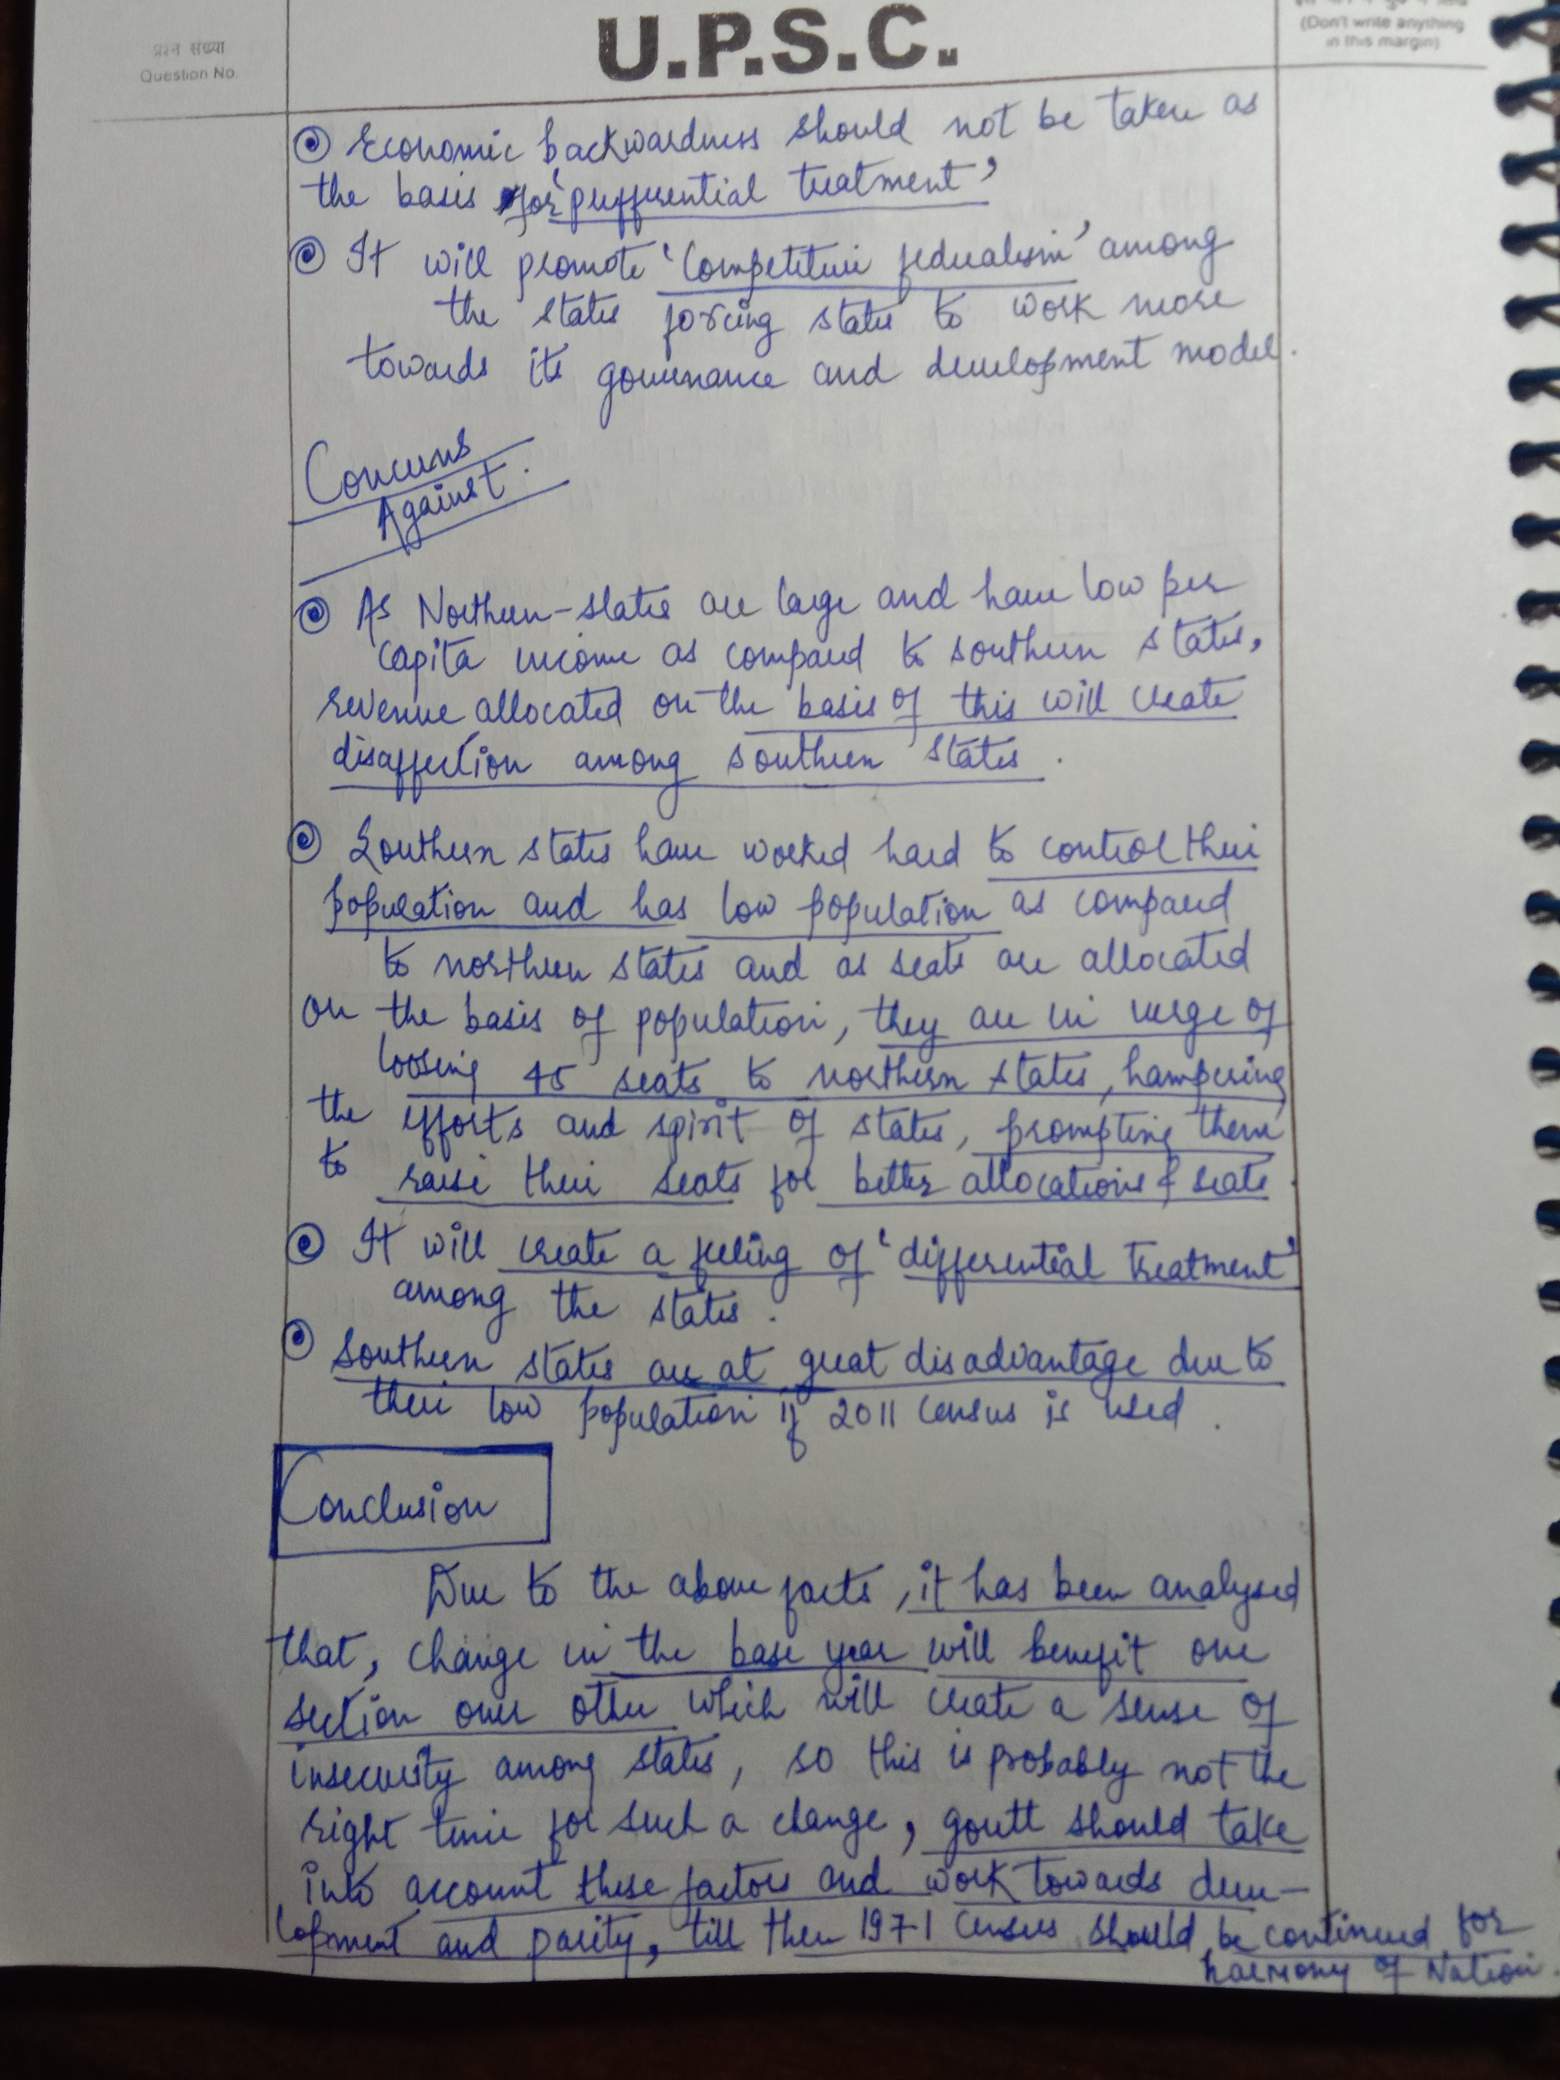 प्रश्न संख्या
Question No.
U.P.S.C.
(Don't write anything
in this margin)
Economic backwardness should not be taken as
the basis for 'preferential treatment'
It will promote 'Competitive federalism' among
the states forcing states to work more
towards its governance and development model.
Concerns
Against.
As Northern-states are large and have low per
capita income as compared to southern states,
revenue allocated on the basis of this will create
disaffection among southern states.
Southern states have worked hard to control their
population and has low population as compared
to northern states and as seats are allocated
on the basis of population, they are in verge of
loosing 45 seats to northern states, hampering
the efforts and spirit of states, prompting them
to raise their seats for better allocations & seats.
It will create a feeling of 'differential treatment'
among the states.
Southern states are at great disadvantage due to
their low population if 2011 census is used.
Conclusion
Due to the above facts, it has been analysed
that, change in the base year will benefit one
section over other which will create a sense of
insecurity among states, so this is probably not the
right time for such a change, govtt should take
into account these factors and work towards deve-
lopment and parity, till then 1971 Census should be continued for
harmony of Nation.